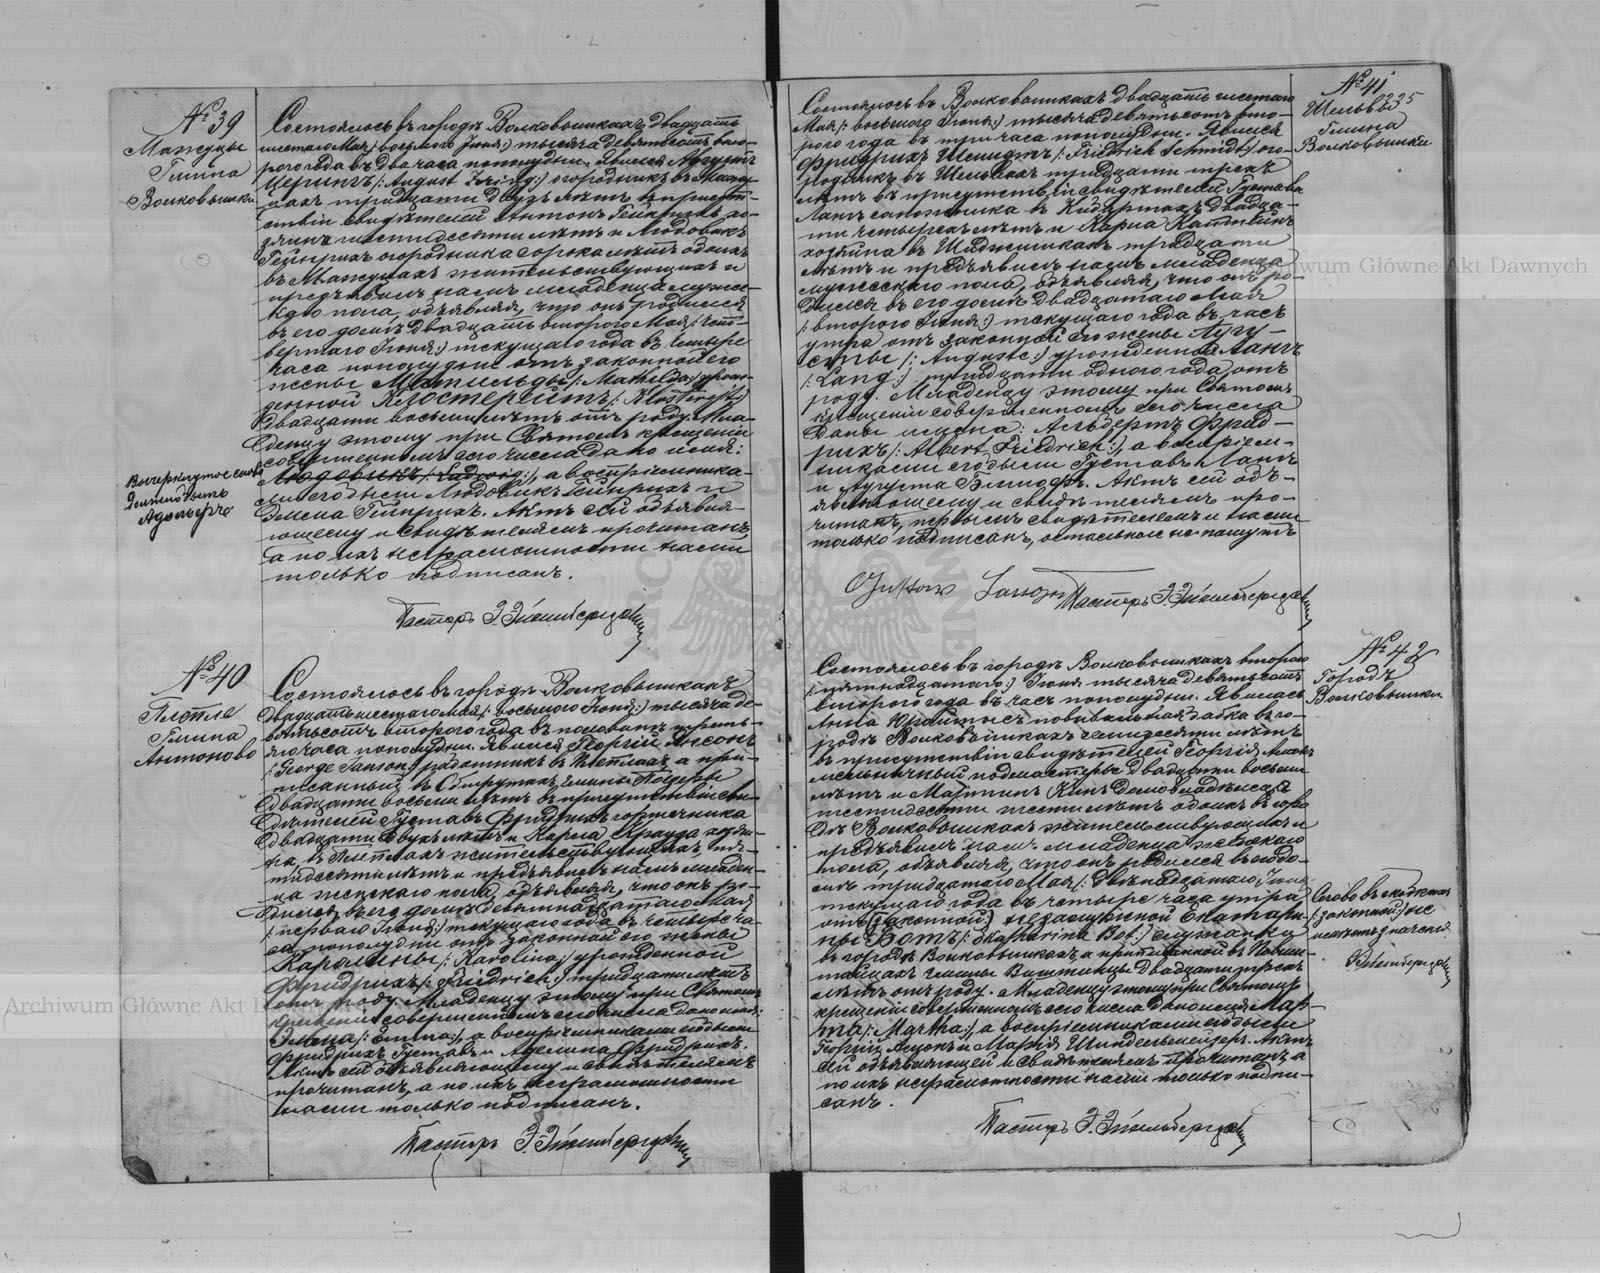 № 39
Мажуцы
Гмина
Волковышки
Состоялось въ городѣ Волковышкахъ двадцать
шестаго Мая /: восьмого Іюня :/ тысяча девятьсотъ вто-
рого года въ два часа пополудни. Явился Августъ
/: August :/ огородникъ въ Мажу-
цахъ тридцати двухъ лѣтъ въ присут-
ствіи свидѣтелей Антона Гейнриха хо-
зяина шестидесяти лѣтъ и Людовика
Гейнриха огородника сорока лѣтъ обоихъ
въ Мажуцахъ жительствующихъ и
предъявилъ намъ младенца мужес-
каго пола, объявляя, что онъ родился
въ его домѣ двадцать второго Мая /: чет-
вертаго Іюня :/ текущаго года въ четыре
часа пополудни отъ законной его
жены Матильды /: Mathilda :/ урож-
денной
двадцати восьми лѣтъ отъ роду. Мла-
денцу этому при Святомъ крещеніи
совершенномъ сего числа дано имя:
Людовикъ /: Ludwig :/, а воспріемника-
ми его были Людовикъ Гейнрихъ и
Гейнрихъ. Актъ сей объявля-
ющему и свидѣтелямъ прочитанъ,
а по ихъ неграмотности нами
только подписанъ.
Вычеркнутое слово
должно быть
Адольфъ
Пасторъ Э.
№ 40
Гмина
Антоново
Состоялось въ городѣ Волковышкахъ
двадцать шестаго Мая /: восьмого Іюня :/ тысяча де-
вятьсотъ второго года въ половинѣ треть-
яго часа пополудни. Явился Георгій Янсонъ
/: George Janson :/ работникъ въ а при-
писанный въ гмины
двадцати восьми лѣтъ въ присутствіи сви-
дѣтелей Густава Фридриха горшечника
двадцати двухъ лѣтъ и Карла хозяи-
на, въ жительствующихъ, пя-
тидесяти лѣтъ и предъявилъ намъ младен-
ца женскаго пола, объявляя, что онъ ро-
дился въ его домѣ девятнадцатаго Мая
/: перваго Іюня :/ текущаго года въ четыре ча-
са пополудни отъ законной его жены
Каролины /: Karolina :/ урожденной
Фридрихъ /: Friedrich :/ тридцати лѣтъ
отъ роду. Младенцу этому при Святомъ
крещеніи совершенномъ сего числа дано имя:
Эмма /: Emma :/, а воспріемниками его были
Фридрихъ Густавъ и Аделина Фридрихъ.
Актъ сей объявляющему и свидѣтелямъ
прочитанъ, а по ихъ неграмотности
нами только подписанъ.
Пасторъ Э.
№ 41
235
Шельвы
Гмина
Волковышки
Состоялось въ Волковышкахъ двадцать шестаго
Мая /: восьмого Іюня :/ тысяча девятьсотъ вто-
рого года въ три часа пополудни. Явился
Фридрихъ Шмидтъ /: Friedrich Schmidt :/ ого-
родникъ въ Шельвахъ тридцати трехъ
лѣтъ въ присутствіи свидѣтелей Густава
Лангъ сапожника въ двадца-
ти четырехъ лѣтъ и Карла
хозяина въ тридцати
лѣтъ и предъявилъ намъ младенца
мужескаго пола, объявляя, что онъ ро-
дился въ его домѣ двадцатаго Мая
/: второго Іюня :/ текущаго года въ часъ
утра отъ законной его жены Авгу-
сты /: Auguste :/ урожденной Лангъ
/: Lang :/ тридцати одного года отъ
роду. Младенцу этому при Святомъ
крещеніи совершенномъ сего числа
даны имена: Альбертъ Фрид-
рихъ /: Albert Friedrich :/, а воспріем-
никами его были Густавъ Лангъ
и Августа. Актъ сей объ-
являющему и свидѣтелямъ про-
читанъ, первымъ свидѣтелемъ и нами
только подписанъ, остальные не пишутъ
Gustaw Lang
Пасторъ Э.
№ 42
Городъ
Волковышки
Состоялось въ городѣ Волковышкахъ второго
/: пятнадцатаго :/ Іюня тысяча девятьсотъ
второго года въ часъ пополудни. Явилась
Анна повивальная бабка въ го-
родѣ Волковышкахъ семидесяти лѣтъ
въ присутствіи свидѣтелей Георгія
мельничный подмастерье двадцати восьми
лѣтъ и Мартинъ домовладѣлецъ
шестидесяти шести лѣтъ обоихъ въ горо-
дѣ Волковышкахъ жительствующихъ и
предъявилъ намъ младенца женскаго
пола, объявляя, что онъ родился въ его до-
мѣ тридцатаго Мая /: двѣнадцатаго Іюня
текущаго года въ четыре часа утра
отъ (законной) незамужной Екатари-
ны Ботъ /: Katharina Bot :/ служанки
въ городѣ Волковышкахъ а приписанной въ
гмины двадцати трехъ
лѣтъ отъ роду. Младенцу этому при Святомъ
крещеніи совершенномъ сего числа дано имя Мар-
та /: Martha :/, а воспріемниками его были
Георгій и Марія. Актъ
сей объявляющей и свидѣтелямъ прочитанъ а
по ихъ неграмотности нами только подпи-
санъ.
Слово въ скобкахъ
/: законной :/ не
имѣетъ значенія
Пасторъ Э.
Archiwum Główne Akt Dawnych